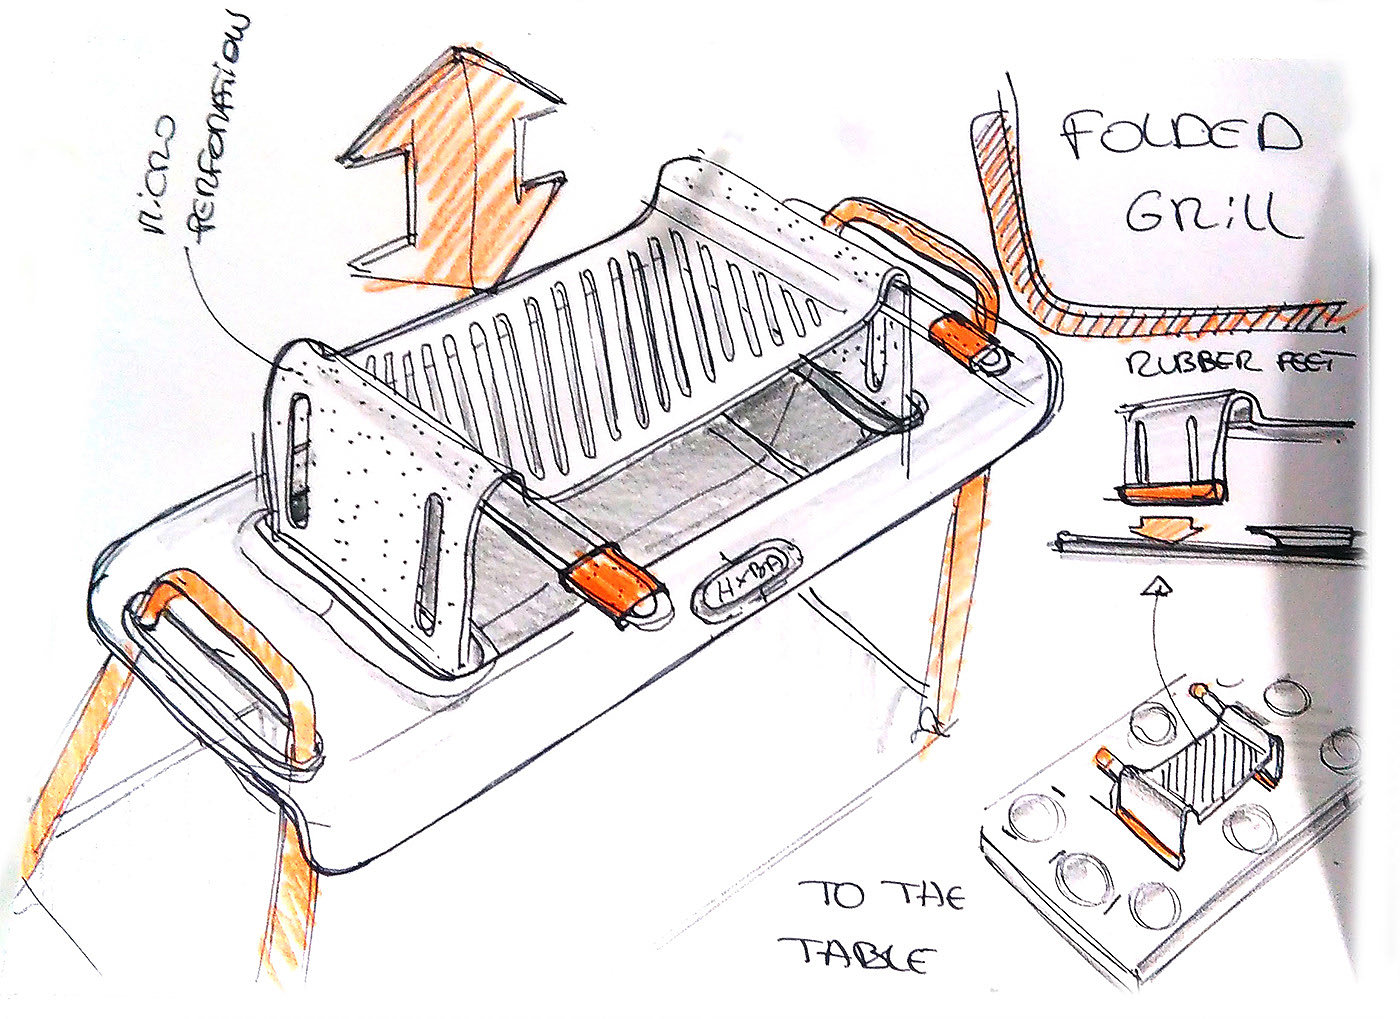 MICRO
PERFORATION
FOLDED
GRILL
RUBBER FEET
HxBA
TO THE
TABLE